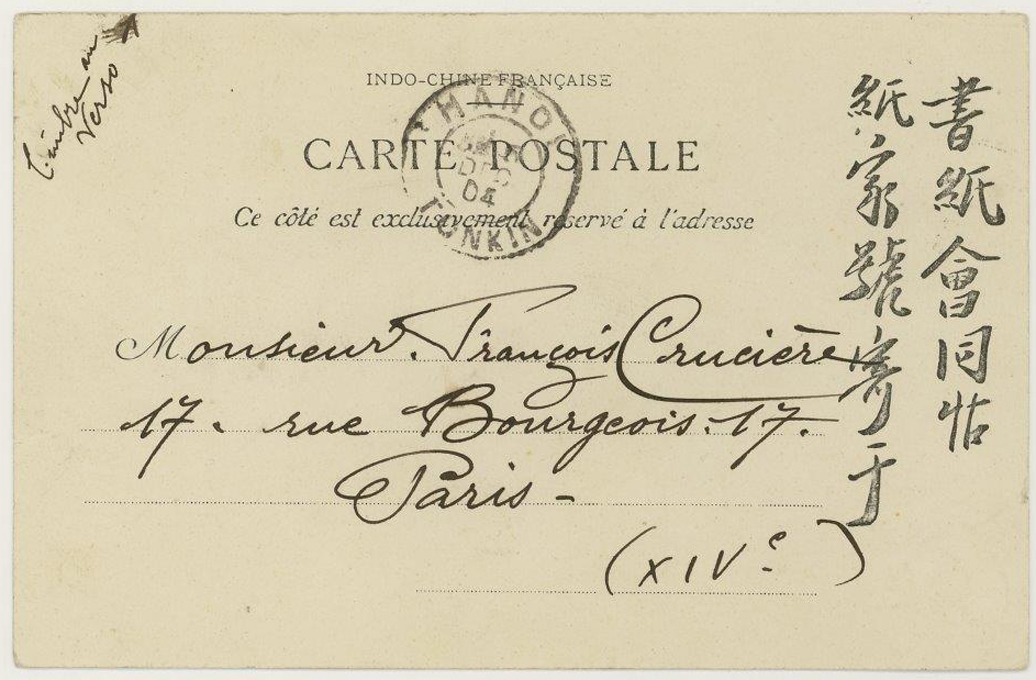 Timbre au
Verso
INDO-CHINE FRANÇAISE
CARTE POSTALE
Ce côté est exclusivement réservé à l'adresse
HANOI
DEC
04
TONKIN
Monsieur François Crucière
17. rue Bourgeois. 17.
Paris -
(XIVe)
書紙會同帖
紙家號寄于